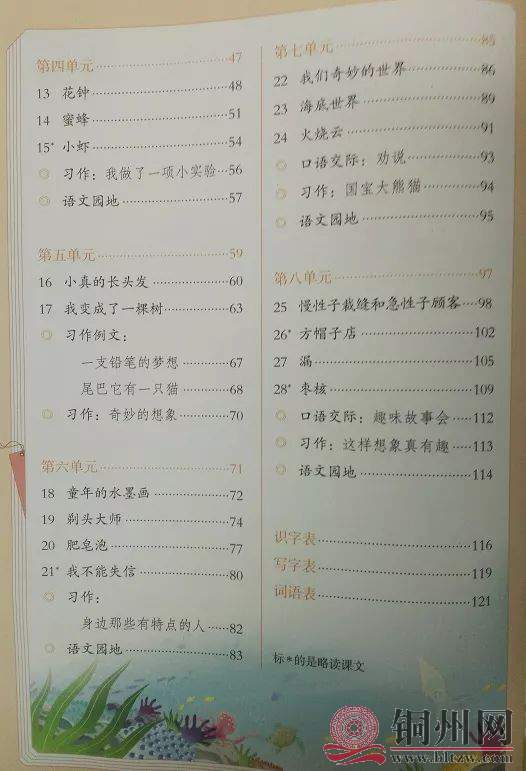 第四单元 47
13 花钟 48
14 蜜蜂 51
15* 小虾 54
◎ 习作：我做了一项小实验 56
◎ 语文园地 57
第五单元 59
16 小真的长头发 60
17 我变成了一棵树 63
◎ 习作例文：
一支铅笔的梦想 67
尾巴它有一只猫 68
◎ 习作：奇妙的想象 70
第六单元 71
18 童年的水墨画 72
19 剃头大师 74
20 肥皂泡 77
21* 我不能失信 80
◎ 习作：
身边那些有特点的人 82
◎ 语文园地 83
第七单元 85
22 我们奇妙的世界 86
23 海底世界 89
24 火烧云 91
◎ 口语交际：劝说 93
◎ 习作：国宝大熊猫 94
◎ 语文园地 95
第八单元 97
25 慢性子裁缝和急性子顾客 98
26* 方帽子店 102
27 漏 105
28* 枣核 109
◎ 口语交际：趣味故事会 112
◎ 习作：这样想象真有趣 113
◎ 语文园地 114
识字表 116
写字表 119
词语表 121
标*的是略读课文
铜州网
www.hltzw.com